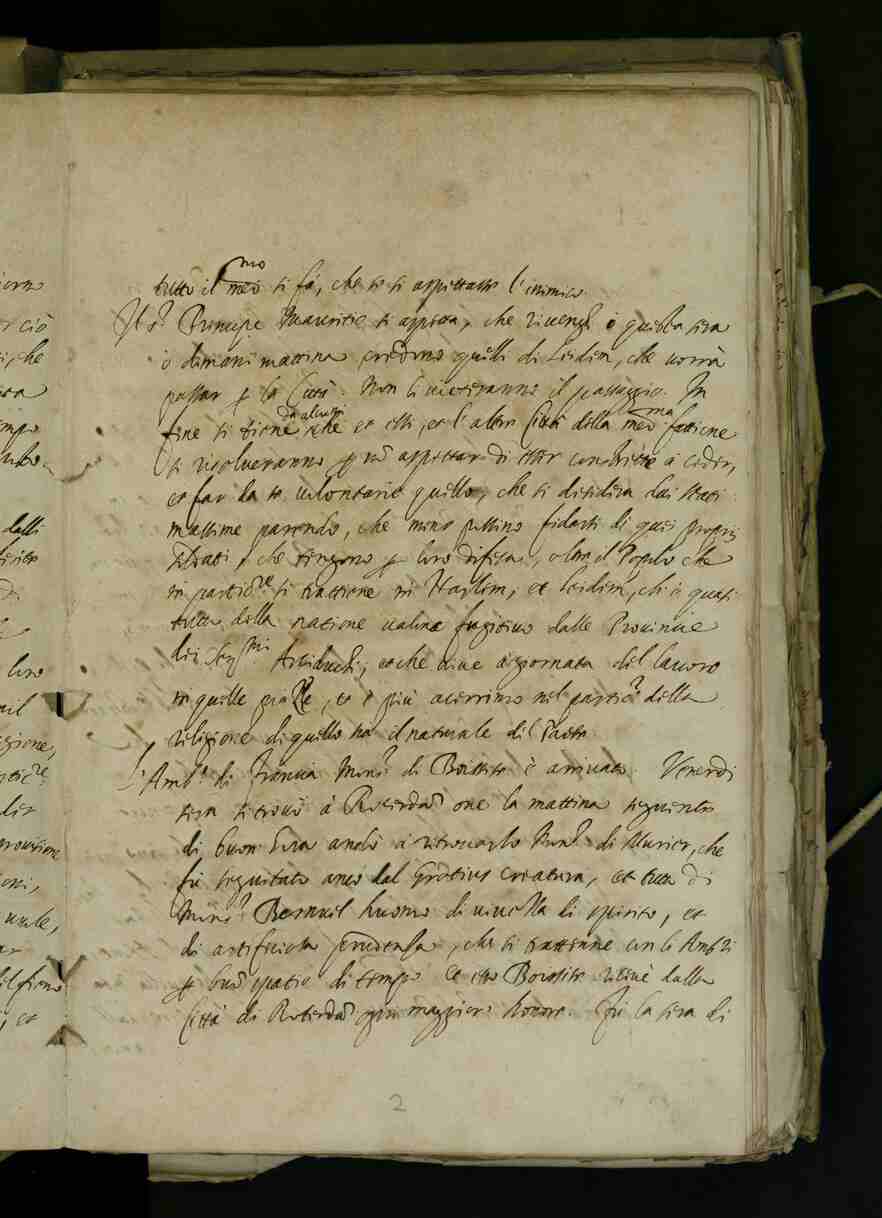 tutto il med.mo si fà, che se si aspettasse l'inimico.
Il s.r Principe Mauritio si aspetta, che vivengh o questa sera
ò dimani mattina credono quelli di Leiden, che vorrà
passar p la Città. Non li vieteranno il passaggio. In
fine si tiene da alcuni che et essi, et l'altre Città della med.ma fattione
si risolveranno p nò aspettar di esser constrette à ceder,
et far da se volontarie quello, che si desidera dai stati
massime parendo, che meno possino fidarsi di quei proprij
soldati, che tengono p loro difesa, oltre il Popolo che
in partic.re si trattiene in Harlem, et Leiden, ch'è quasi
tutto della natione valona fugitivo dalle Provincie
dei Ser.mi Arciduchi, et che vive à giornata del lavoro
in quelle, et è più acerrimo nel partic.r della
religione di quello ha il naturale del Paese.
L'Amb.r di Francia Mons.r di Boissise è arrivato. Venerdì
sera si trovò à Roterdam ove la mattina seguente
di buon hora andò à ritrovarlo Mons.r di Murier, che
fù seguitato anco dal Grotius creatura, et tutto di
Mons.r Bernvil huomo di vivezza di spirito, et
di artificiosa prudenza, che si trattenne con li Amb.ri
p buò spatio di tempo. Et esso Boissise venne dalla
Città di Roterdam con maggior honore. Fù la sera di
2